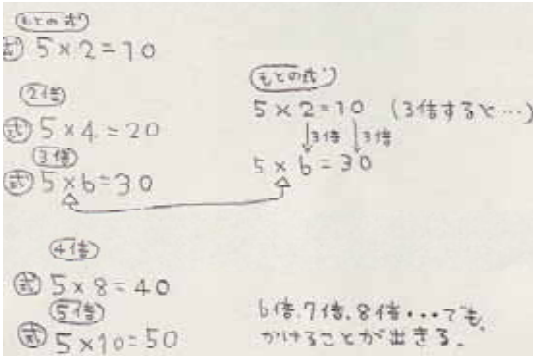 もとの式
式 5×2=10
2倍
式 5×4=20
3倍
式 5×6=30
4倍
式 5×8=40
5倍
式 5×10=50
もとの式
5×2=10 (3倍すると…)
↓3倍 ↓3倍
5×6=30
6倍、7倍、8倍・・・でも、
かけることが出きる。